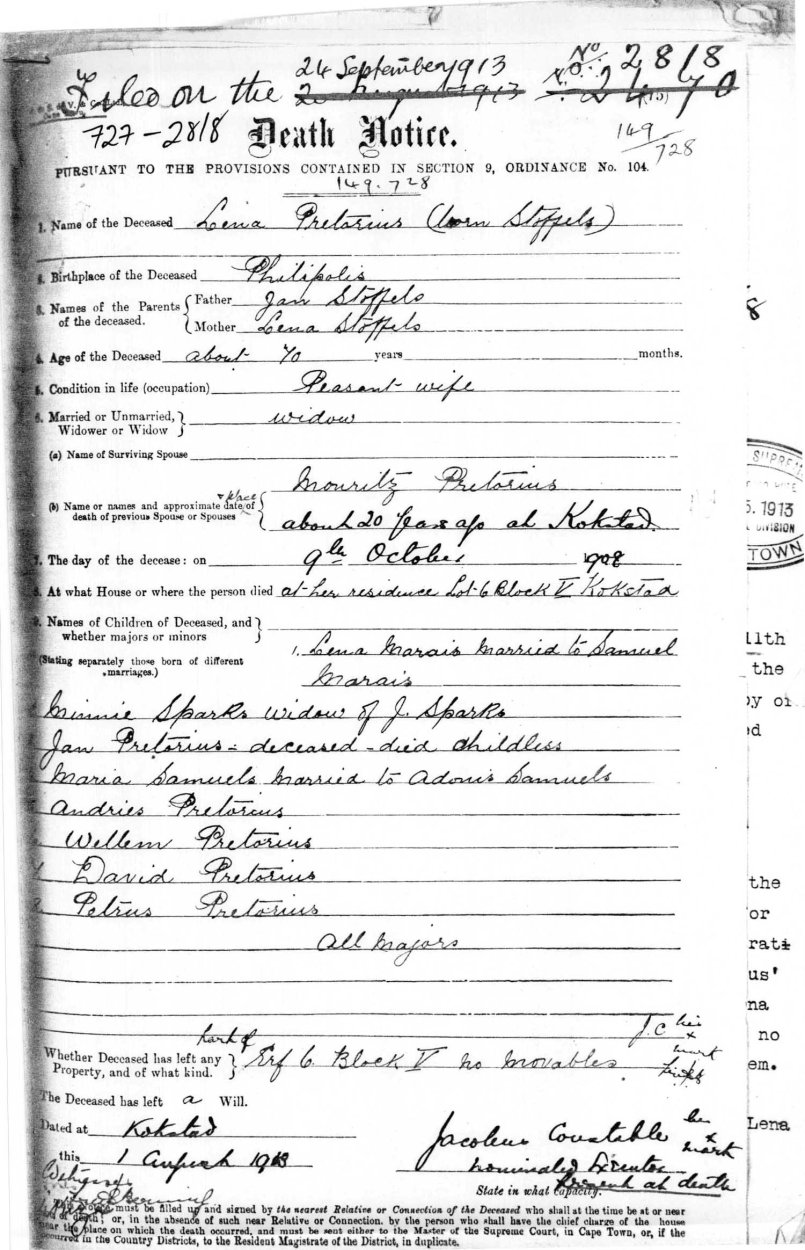 24 September 1913 No 2818
Filed on the 20 August 1913 No. 2470
727-2818 Death Notice. 149/728
PURSUANT TO THE PROVISIONS CONTAINED IN SECTION 9, ORDINANCE No. 104.
149.728
1. Name of the Deceased Lena Pretorius (born Stoffels)
2. Birthplace of the Deceased Philipolis
3. Names of the Parents of the deceased. { Father Jan Stoffels
Mother Lena Stoffels
4. Age of the Deceased about 70 years months.
5. Condition in life (occupation) Peasant wife
6. Married or Unmarried, Widower or Widow } widow
(a) Name of Surviving Spouse
Mouritz Pretorius
(b) Name or names and approximate date & place of death of previous Spouse or Spouses { about 20 years ago at Kokstad.
7. The day of the decease: on 9th October 1908
8. At what House or where the person died at her residence Lot 6 Block V Kokstad
9. Names of Children of Deceased, and whether majors or minors }
(Stating separately those born of different marriages.)
1. Lena Marais Married to Samuel
Marais
Minnie Sparks widow of J. Sparks
Jan Pretorius - deceased - died childless
Maria Samuels Married to Adonis Samuels
Andries Pretorius
Wellem Pretorius
David Pretorius
8 Petrus Pretorius
All Majors
J.C his x mark
Whether Deceased has left any Property, and of what kind. } Erf 6. Block V no movables
The Deceased has left a Will.
Dated at Kokstad
this 1 August 1913
Jacobus Constable his x mark
nominated Executor
State in what capacity. Present at death
must be filled up and signed by the nearest Relative or Connection of the Deceased who shall at the time be at or near
of death; or, in the absence of such near Relative or Connection, by the person who shall have the chief charge of the house
near the place on which the death occurred, and must be sent either to the Master of the Supreme Court, in Cape Town, or, if the
occurred in the Country Districts, to the Resident Magistrate of the District, in duplicate.
8
SUPRE
5. 1913
DIVISION
TOWN
11th
the
py of
ed
the
or
rati
us'
na
no
em.
Lena